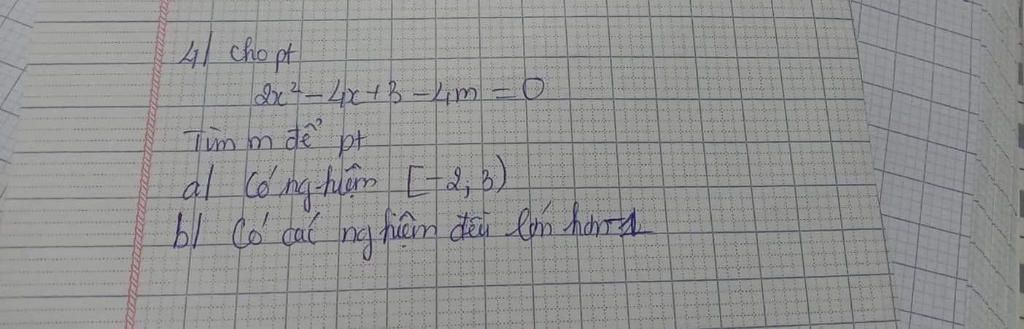 4/ cho pt
2x² - 4x + 3 - 4m = 0
Tìm m để pt
a/ Có nghiệm [-2, 3)
b/ Có các nghiệm đều lớn hơn